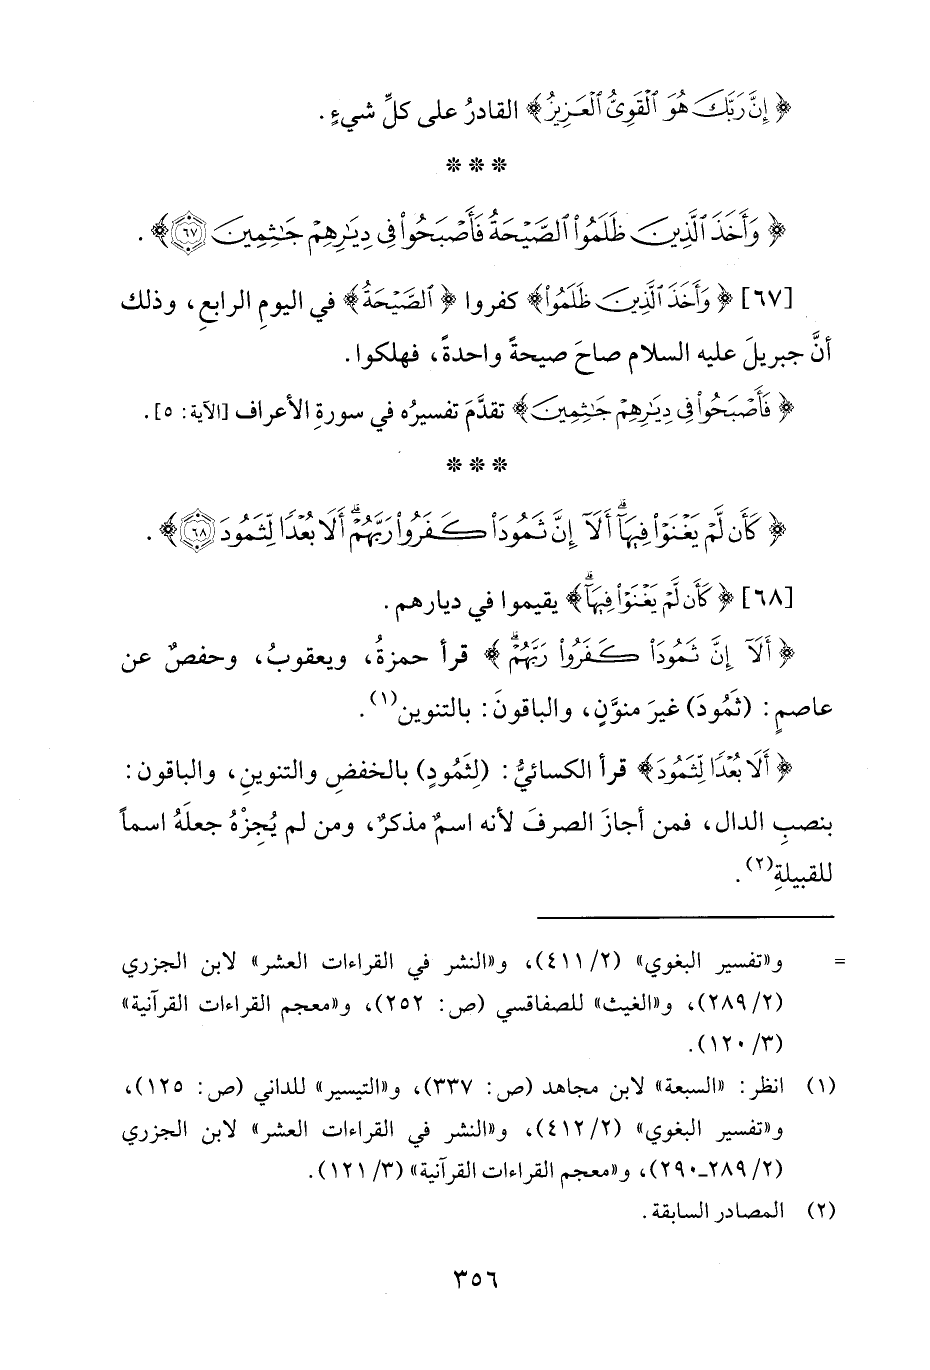 ﴿ إِنَّ رَبَّكَ هُوَ ٱلْقَوِىُّ ٱلْعَزِيزُ﴾ القادرُ على كلِّ شيءٍ.
***
﴿ وَأَخَذَ ٱلَّذِينَ ظَلَمُوا۟ ٱلصَّيْحَةُ فَأَصْبَحُوا۟ فِى دِيَٰرِهِمْ جَٰثِمِينَ ٦٧﴾.
[٦٧] ﴿ وَأَخَذَ ٱلَّذِينَ ظَلَمُوا۟﴾ كفروا ﴿ ٱلصَّيْحَةُ﴾ في اليومِ الرابعِ، وذلك
أنَّ جبريلَ عليه السلام صاحَ صيحةً واحدةً، فهلكوا.
﴿ فَأَصْبَحُوا۟ فِى دِيَٰرِهِمْ جَٰثِمِينَ﴾ تقدَّمَ تفسيرُه في سورةِ الأعراف [الآية: ٥].
***
﴿ كَأَن لَّمْ يَغْنَوْا۟ فِيهَآ ۗ أَلَآ إِنَّ ثَمُودَا۟ كَفَرُوا۟ رَبَّهُمْ ۗ أَلَا بُعْدًا لِّثَمُودَ ٦٨﴾.
[٦٨] ﴿ كَأَن لَّمْ يَغْنَوْا۟ فِيهَآ ۗ﴾ يقيموا في ديارهم.
﴿ أَلَآ إِنَّ ثَمُودَا۟ كَفَرُوا۟ رَبَّهُمْ ۗ ﴾ قرأ حمزةُ، ويعقوبُ، وحفصٌ عن
عاصمٍ: (ثَمُودَ) غيرَ منوَّنٍ، والباقونَ: بالتنوين(١).
﴿ أَلَا بُعْدًا لِّثَمُودَ﴾ قرأ الكسائيُّ: (لِثَمُودٍ) بالخفضِ والتنوينِ، والباقون:
بنصبِ الدال، فمن أجازَ الصرفَ لأنه اسمٌ مذكرٌ، ومن لم يُجِزْهُ جعلَهُ اسماً
للقبيلةِ(٢).
= و«تفسير البغوي» (٢/ ٤١١)، و«النشر في القراءات العشر» لابن الجزري
(٢/ ٢٨٩)، و«الغيث» للصفاقسي (ص: ٢٥٢)، و«معجم القراءات القرآنية»
(٣/ ١٢٠).
(١) انظر: «السبعة» لابن مجاهد (ص: ٣٣٧)، و«التيسير» للداني (ص: ١٢٥)،
و«تفسير البغوي» (٢/ ٤١٢)، و«النشر في القراءات العشر» لابن الجزري
(٢/ ٢٨٩-٢٩٠)، و«معجم القراءات القرآنية» (٣/ ١٢١).
(٢) المصادر السابقة.
٣٥٦